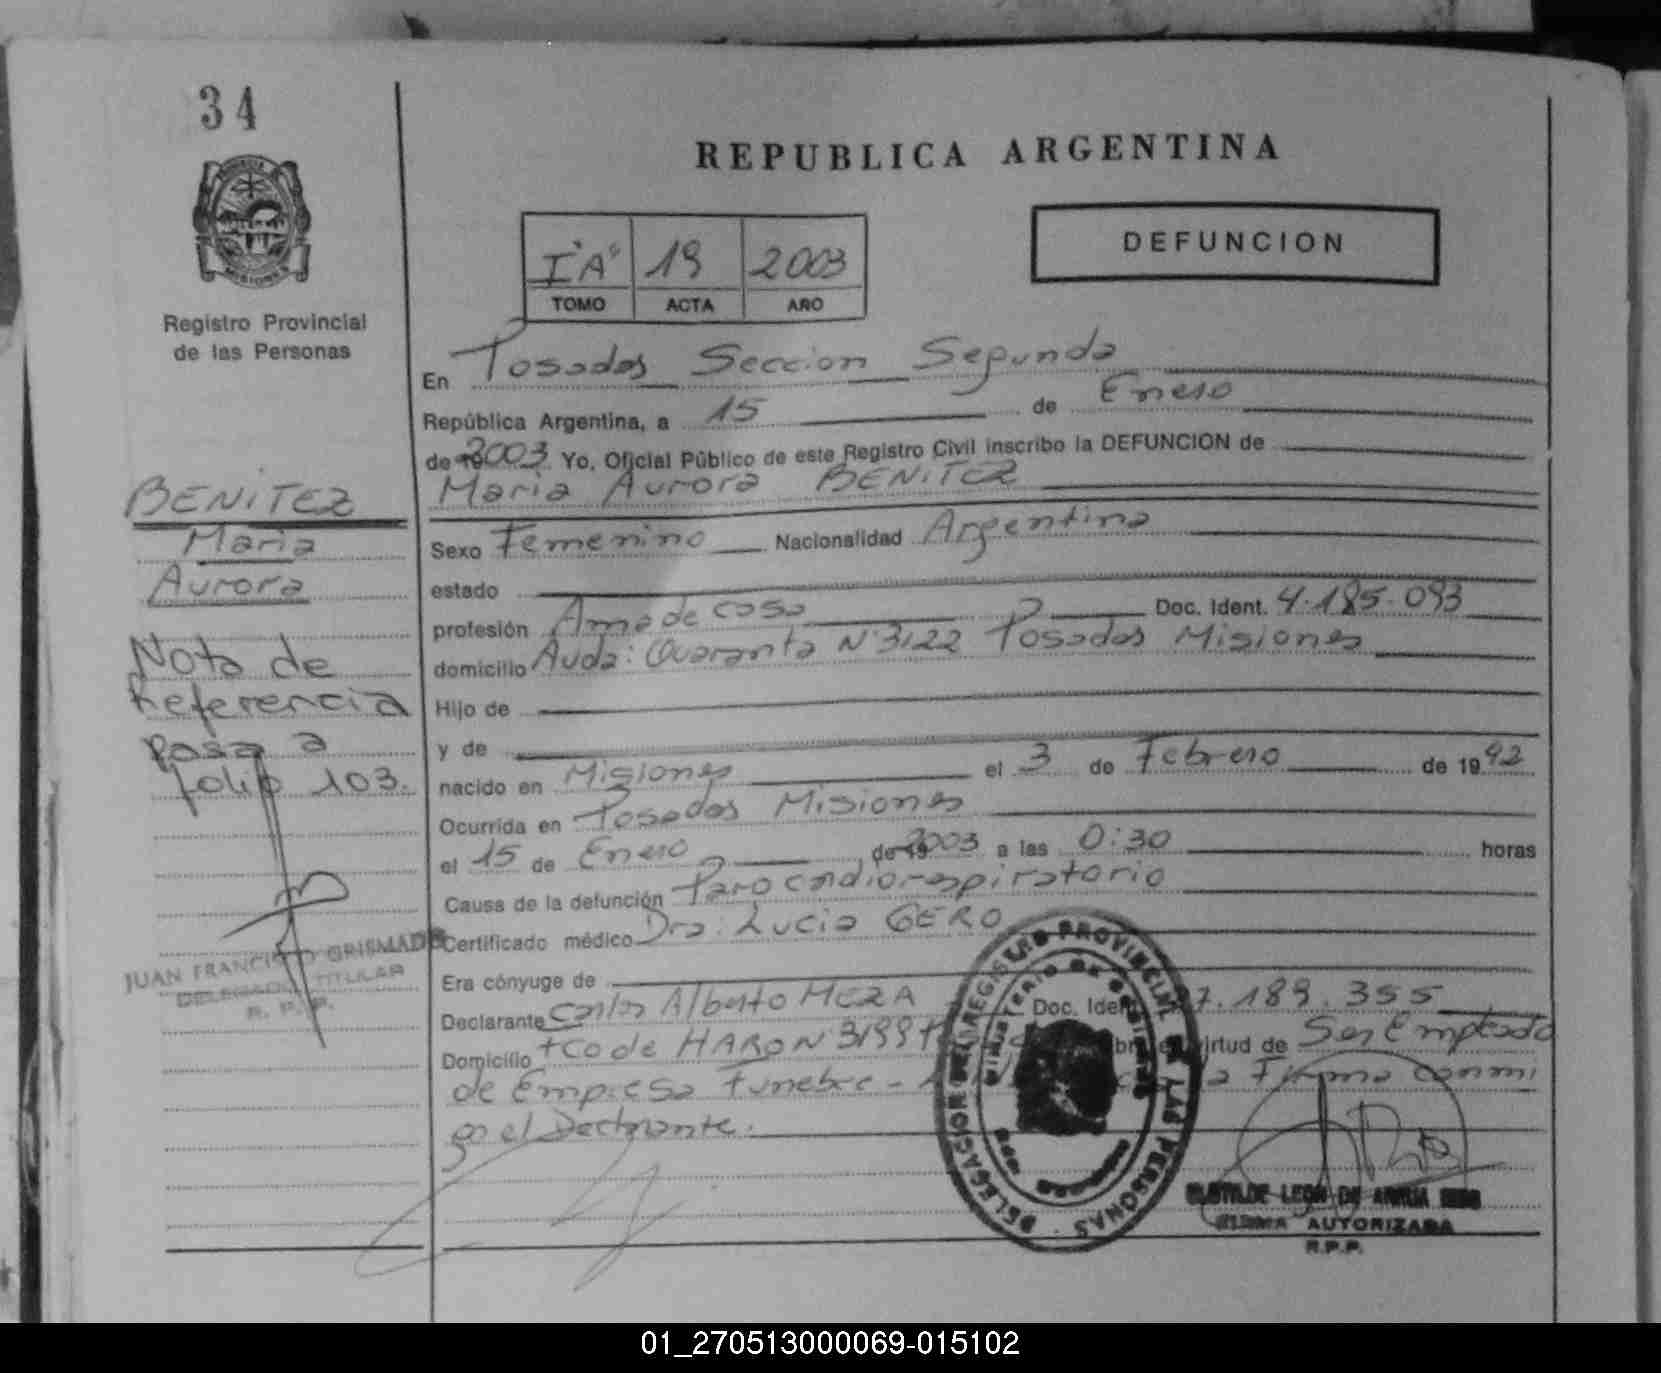 34
Registro Provincial
de las Personas
REPUBLICA ARGENTINA
DEFUNCION
I "A" 19 2003
TOMO ACTA AÑO
En Posadas Seccion Segunda
República Argentina, a 15 de Enero
de 2003 Yo, Oficial Público de este Registro Civil inscribo la DEFUNCION de
Maria Aurora BENITEZ
Sexo Femenino Nacionalidad Argentina
estado
profesión Ama de casa Doc. Ident. 4.185.093
domicilio Avda: Quaranta N° 3122 Posadas Misiones
Hijo de
y de
nacido en Misiones el 3 de Febrero de 1942
Ocurrida en Posadas Misiones
el 15 de Enero de 2003 a las 0:30 horas
Causa de la defunción Paro cardiorespiratorio
Certificado médico Dra: Lucia GERO
Era cónyuge de
Declarante Carlos Alberto MEZA Doc. Ident. 7.189.355
Domicilio Fco de HARO N 3199 virtud de Ser Empleado
de Empresa Funebre - Firma conmi
go el Declarante.
BENITEZ
Maria
Aurora
Nota de
Referencia
pasa a
folio 103.
JUAN FRANCISCO GRISMADO
DELEGADO TITULAR
R. P. P.
DELEGACION DEL REGISTRO PROVINCIAL DE LAS PERSONAS
MINISTERIO DE GOBIERNO
CLOTILDE LEON DE
FIRMA AUTORIZADA
R.P.P.
01_270513000069-015102